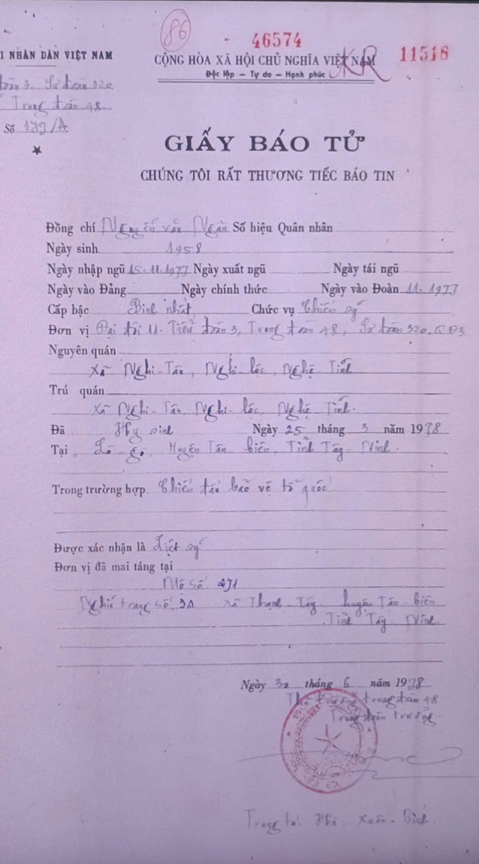 86
46574
11518
I NHÂN DÂN VIỆT NAM
CỘNG HÒA XÃ HỘI CHỦ NGHĨA VIỆT NAM
KR
Độc lập - Tự do - Hạnh phúc
đoàn 3 Sư đoàn 320
Trung đoàn 48
Số 179/A
GIẤY BÁO TỬ
CHÚNG TÔI RẤT THƯƠNG TIẾC BÁO TIN
Đồng chí Nguyễn văn Ngân Số hiệu Quân nhân
Ngày sinh 1958
Ngày nhập ngũ 15.11.1977 Ngày xuất ngũ Ngày tái ngũ
Ngày vào Đảng Ngày chính thức Ngày vào Đoàn 11.1977
Cấp bậc Binh nhất Chức vụ Chiến sỹ
Đơn vị Đại đội 11. Tiểu đoàn 3, Trung đoàn 48, Sư đoàn 320. QĐ3
Nguyên quán
Xã Nghi-Tân, Nghi lộc, Nghệ Tĩnh
Trú quán
Xã Nghi-Tân, Nghi-lộc, Nghệ Tĩnh.
Đã Hy sinh Ngày 25 tháng 3 năm 1978
Tại Lò gò, Huyện Tân biên, Tỉnh Tây Ninh.
Trong trường hợp. Chiến đấu bảo vệ tổ quốc
Được xác nhận là Liệt sỹ
Đơn vị đã mai táng tại
Mộ số 271
Nghĩa trang số 3A xã Thạnh-Tây huyện Tân biên
Tỉnh Tây Ninh.
Ngày 30 tháng 6 năm 1978
Thủ trưởng trung đoàn 48
Trung đoàn trưởng
Trung tá. Hà-Xuân-Bính